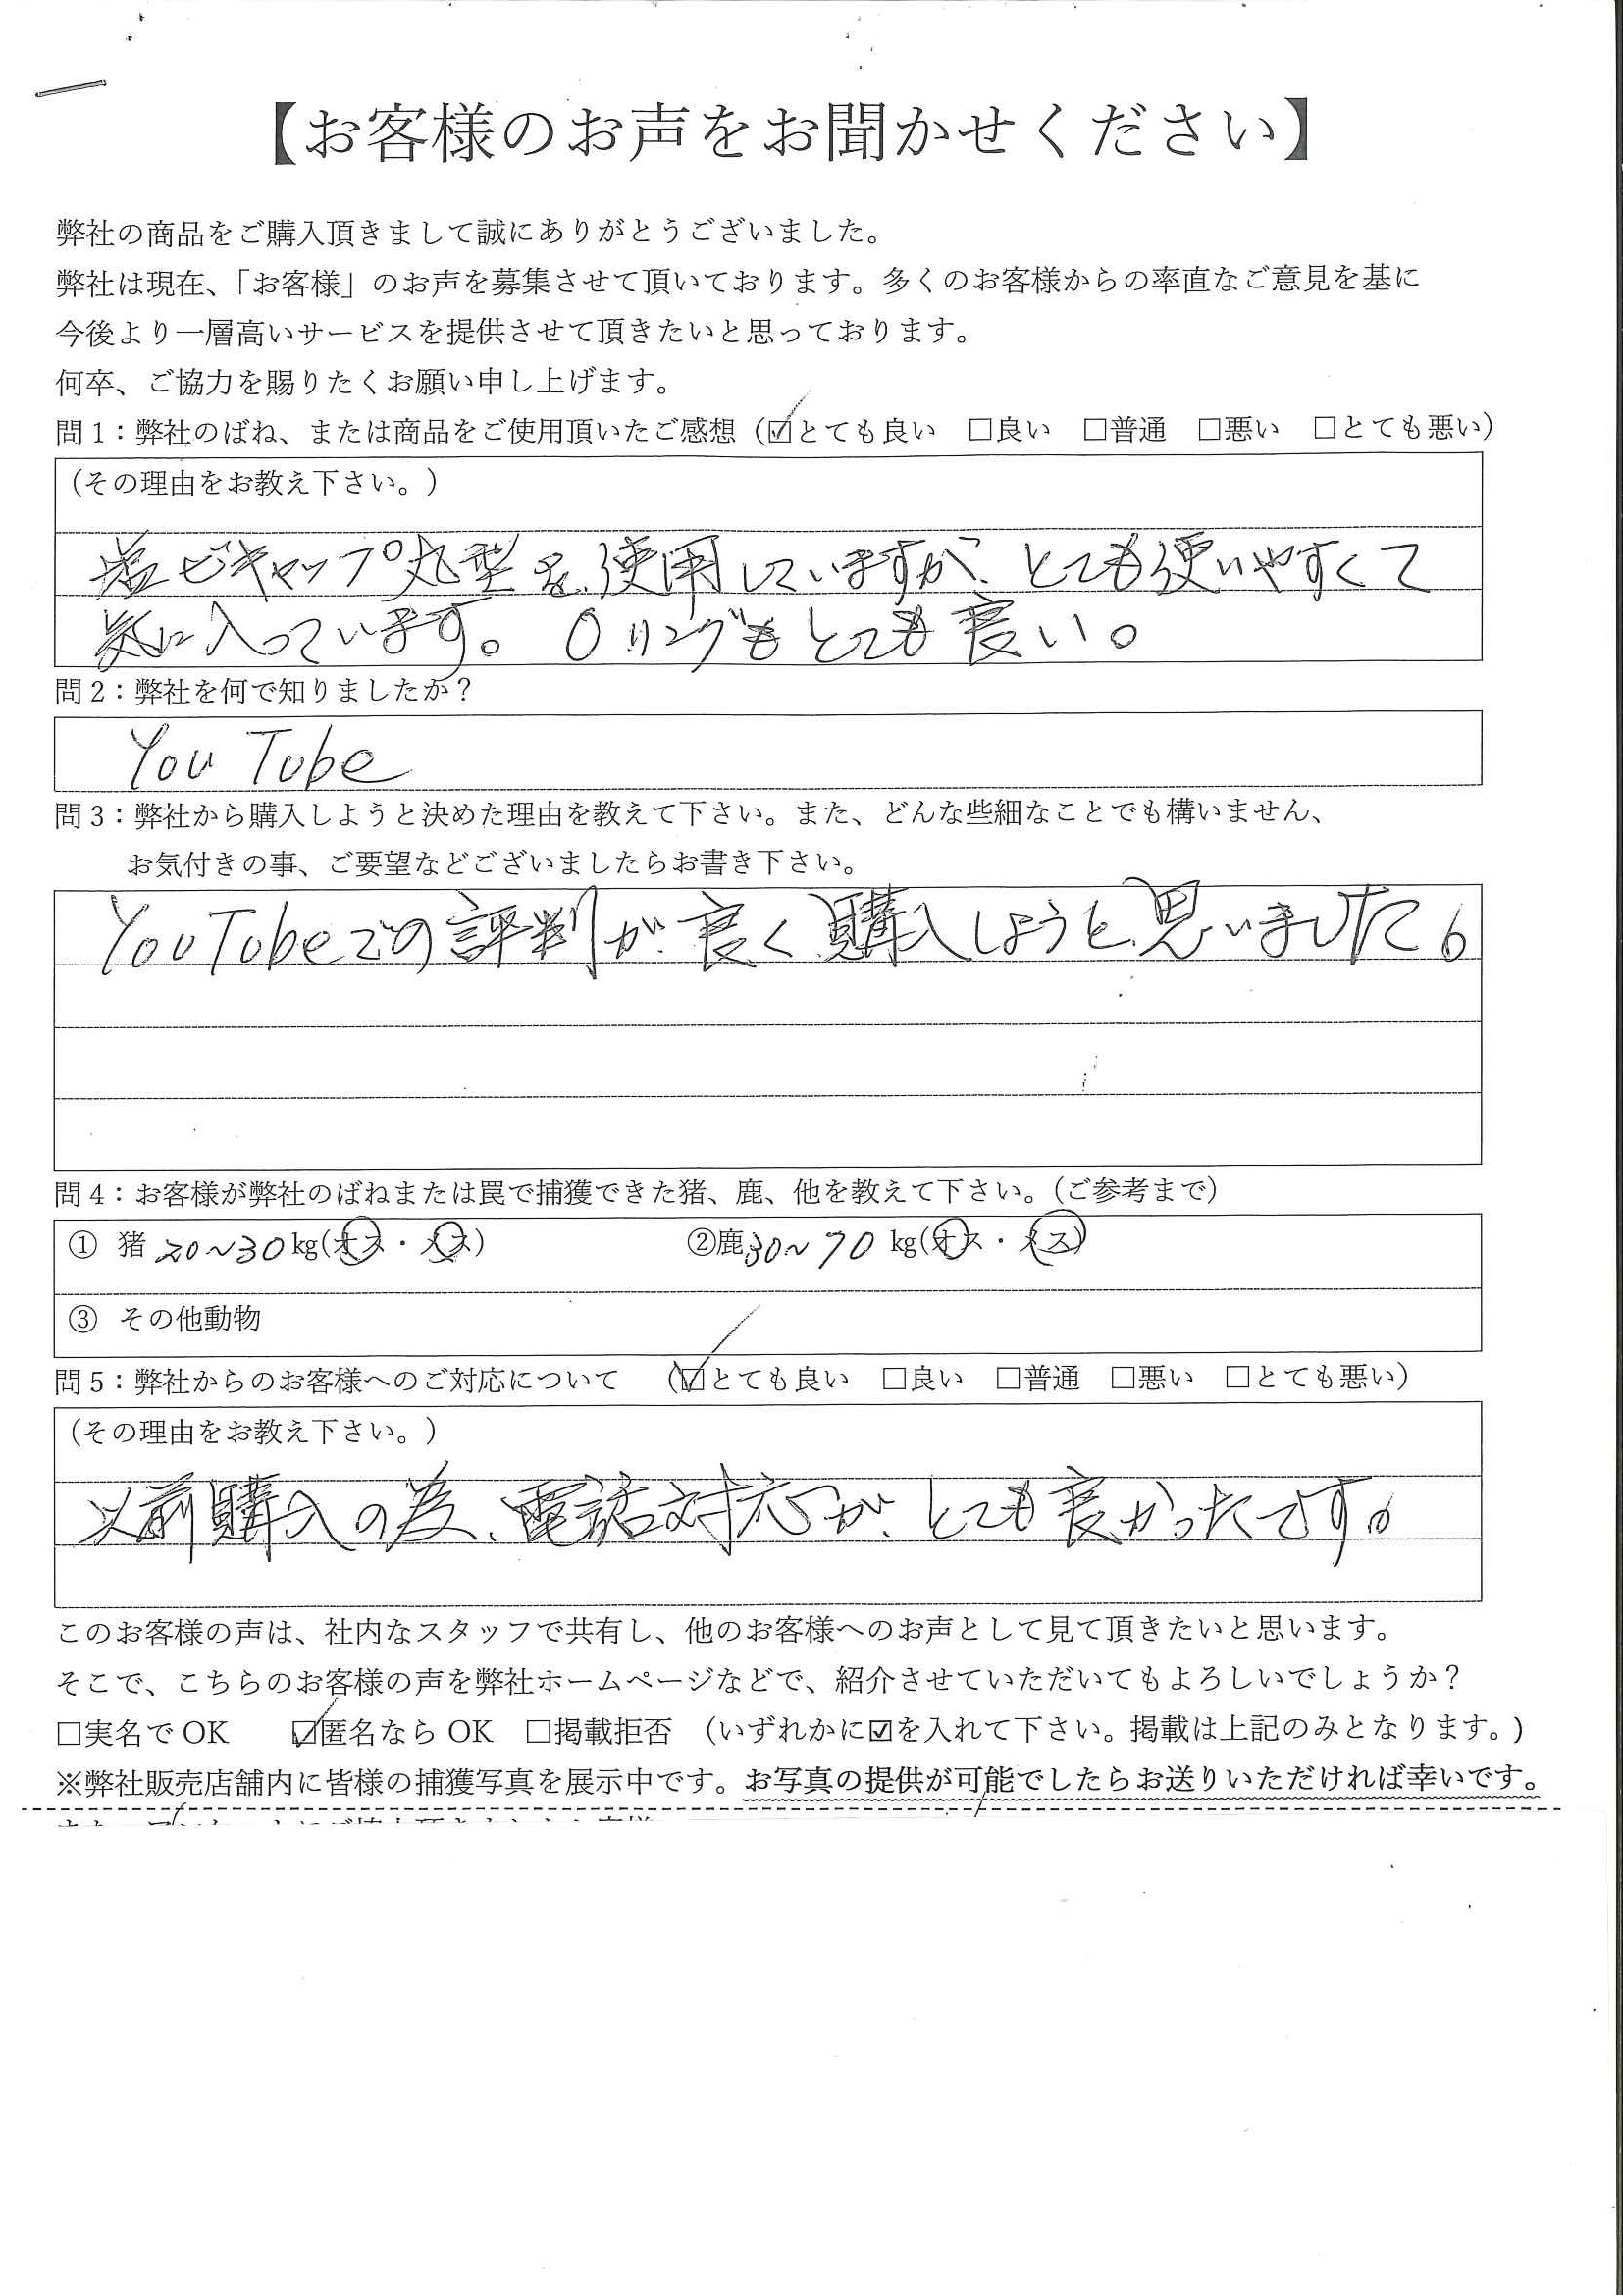 【お客様のお声をお聞かせください】
弊社の商品をご購入頂きまして誠にありがとうございました。
弊社は現在、「お客様」のお声を募集させて頂いております。多くのお客様からの率直なご意見を基に
今後より一層高いサービスを提供させて頂きたいと思っております。
何卒、ご協力を賜りたくお願い申し上げます。
問1：弊社のばね、または商品をご使用頂いたご感想（☑とても良い　□良い　□普通　□悪い　□とても悪い）
（その理由をお教え下さい。）
塩ビキャップ丸型を使用していますが、とても使いやすくて
気に入っています。Oリングもとても良い。
問2：弊社を何で知りましたか？
YouTube
問3：弊社から購入しようと決めた理由を教えて下さい。また、どんな些細なことでも構いません、
お気付きの事、ご要望などございましたらお書き下さい。
YouTubeでの評判が良く購入しようと思いました。
問4：お客様が弊社のばねまたは罠で捕獲できた猪、鹿、他を教えて下さい。（ご参考まで）
① 猪 20～30 kg(オス・メス)　②鹿 30～70 kg(オス・メス)
③ その他動物
問5：弊社からのお客様へのご対応について　（☑とても良い　□良い　□普通　□悪い　□とても悪い）
（その理由をお教え下さい。）
以前購入の為、電話対応が、とても良かったです。
このお客様の声は、社内なスタッフで共有し、他のお客様へのお声として見て頂きたいと思います。
そこで、こちらのお客様の声を弊社ホームページなどで、紹介させていただいてもよろしいでしょうか？
□実名でOK　☑匿名ならOK　□掲載拒否　（いずれかに☑を入れて下さい。掲載は上記のみとなります。）
※弊社販売店舗内に皆様の捕獲写真を展示中です。お写真の提供が可能でしたらお送りいただければ幸いです。